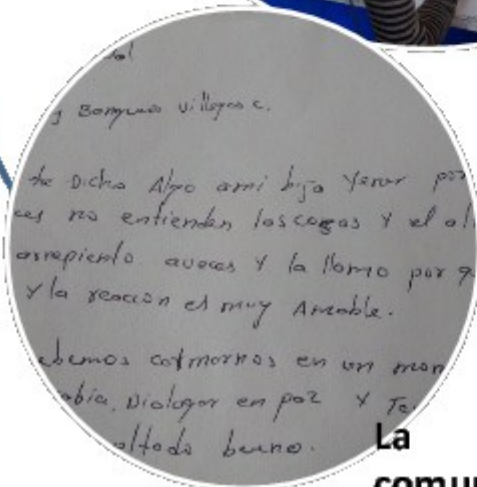 Villegas C.
he Dicho Algo ami hija Yener por
ces no entienden las cosas Y el al
arrepiento aveces Y la llamo por q
Y la reacción es muy Amable.
ebemos calmarnos en un mom
abia, Dialogar en paz Y Te
ultado bueno.
La
comun